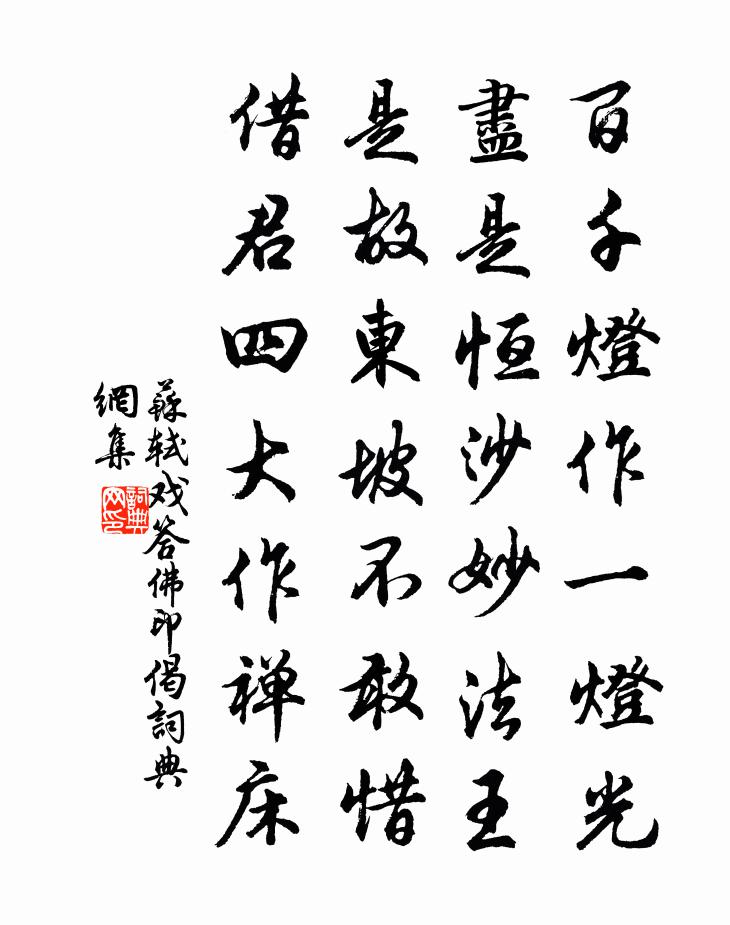 百千燈作一燈光
盡是恒沙妙法王
是故東坡不敢惜
借君四大作禅床
蘇軾戏答佛印偈詞典
網集
詞典
网印